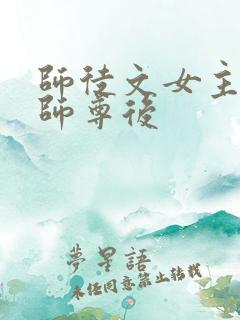 師徒文女主
師尊後
夢星語
未經同意禁止轉載